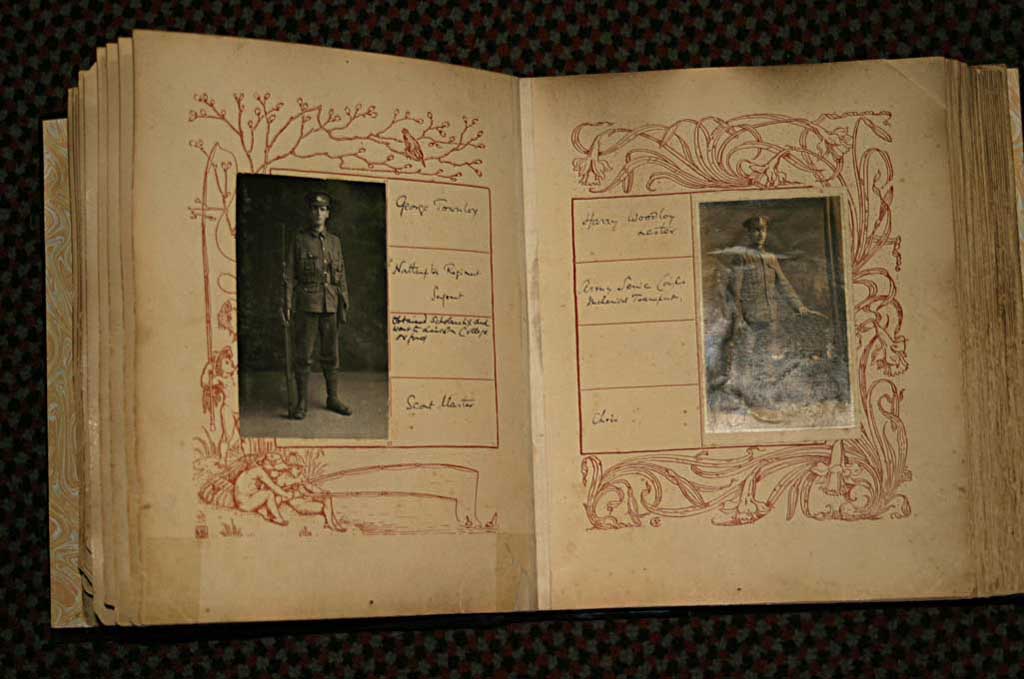 George Townley
Northampton Regiment
Sergeant
Obtained Scholarship and
went to Lincoln College
Oxford
Scout Master
Harry Woodley
Army Service Corps
Mechanical Transport.
Choir